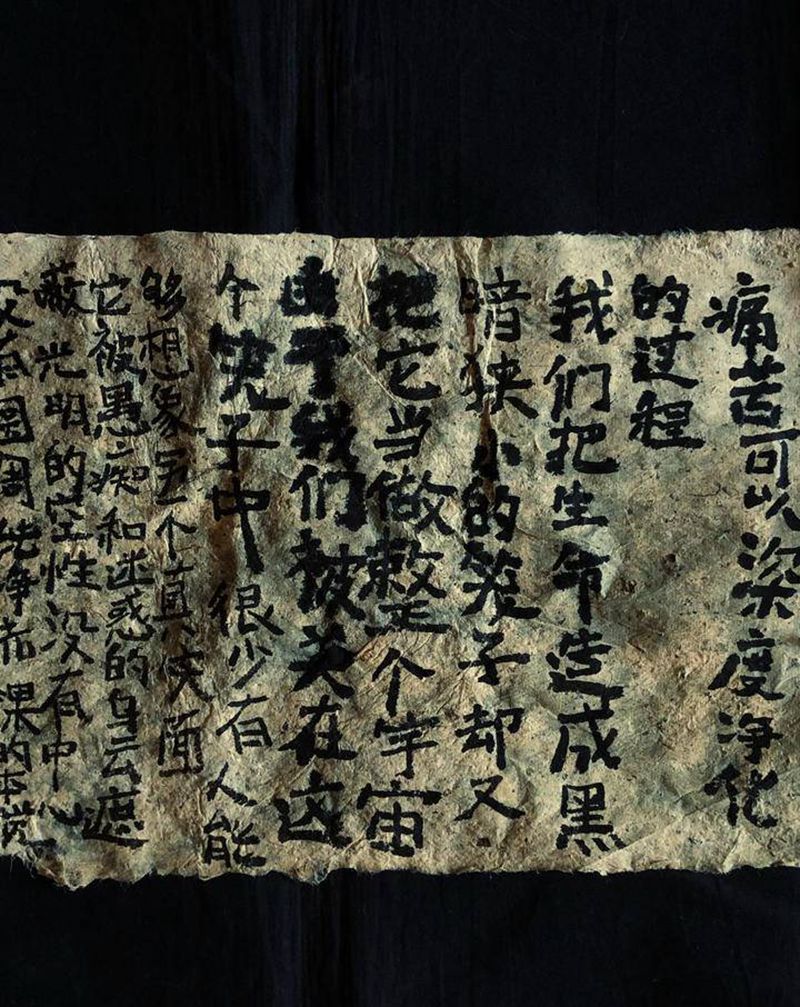 痛苦可以深度净化
的过程
我们把生命造成黑
暗狭小的笼子却又
把它当做整个宇宙
由于我们被关在这
个子中很少有人能
够想象另一个真实面
它被愚痴和迷惑的乌云遮
蔽光明的空性没有中心
有圆周纯净赤裸的本觉